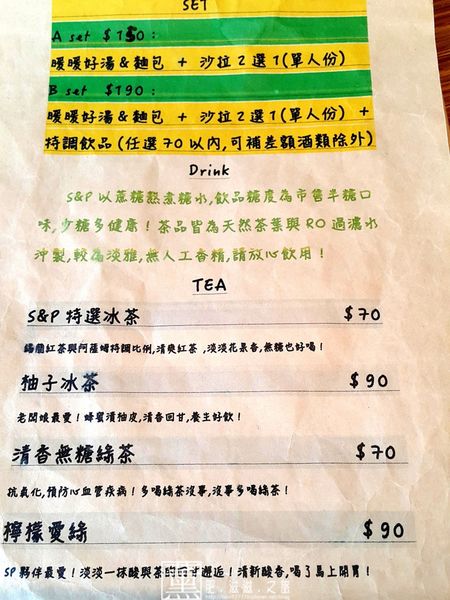 SET
A set $150:
暖暖好湯&麵包 + 沙拉2選1(單人份)
B set $190:
暖暖好湯&麵包 + 沙拉2選1(單人份) +
特調飲品(任選70以內,可補差額酒類除外)
Drink
S&P以蔗糖熬煮糖水,飲品糖度為市售半糖口
味,少糖多健康!茶品皆為天然茶葉與RO過濾水
沖製,較為淡雅,無人工香精,請放心飲用!
TEA
S&P特選冰茶 $70
錫蘭紅茶與阿薩姆特調比例,清爽紅茶,淡淡花果香,無糖也好喝!
柚子冰茶 $90
老闆娘最愛!蜂蜜漬柚皮,清香回甘,養生好飲!
清香無糖綠茶 $70
抗氧化,預防心血管疾病!多喝綠茶沒事,沒事多喝綠茶!
檸檬愛綠 $90
SP夥伴最愛!淡淡一抹酸與茶的回甘邂逅!清新酸香,喝了馬上開胃!